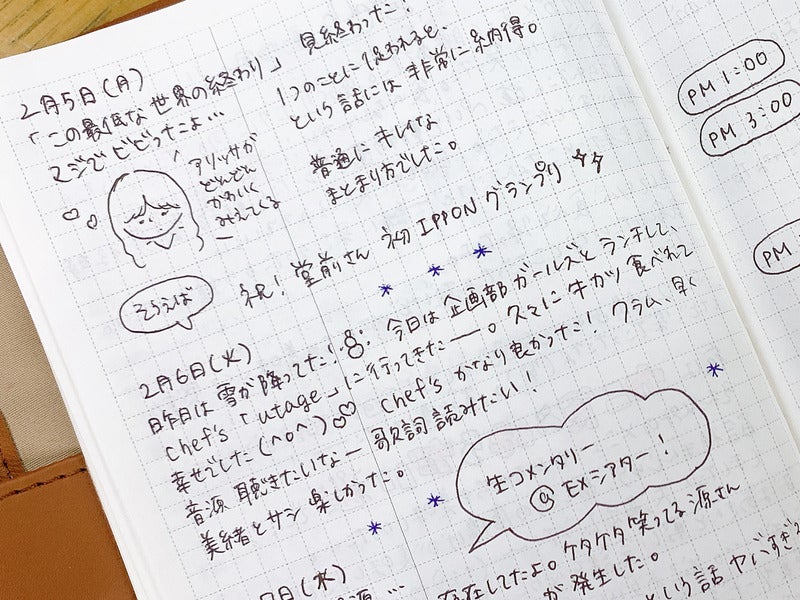 2月5日(月)
「この最低な世界の終わり」見終わった!
マジでビビったよ…
アリッサが
どんどん
かわいく
みえてくる
1つのことに
という話には非常に納得。
普通にキレイな
まとまり方でした。
そういえば
祝!堂前さん 初IPPONグランプリ
2月6日(火)
昨日は雪が降ってた!今日は企画部ガールズとランチして、
chef's「utage」に行ってきたー。久々に牛カツ食べれて
幸せでした(^o^) chef'sかなり良かったな! クラム、早く
音源聴きたいなー歌詞読みたい!
美緒とサシ楽しかった。
生コメンタリー
@EXシアター!
日(水)
存在してたよ。ケタケタ笑ってる源さん
が発生した。
という話ヤバすぎ
PM 1:00
PM 3:00
PM